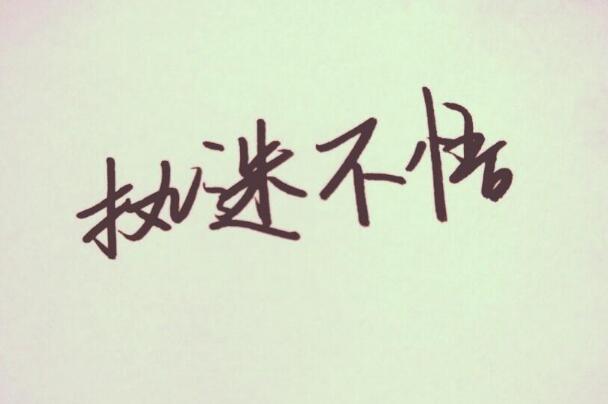 执迷不悟